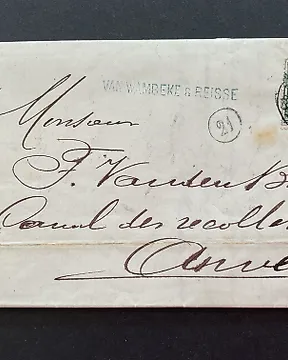 VAN WAMBEKE & BEISSE
21
Monsieur
F. Vanden B
Canal des recolle
Anve